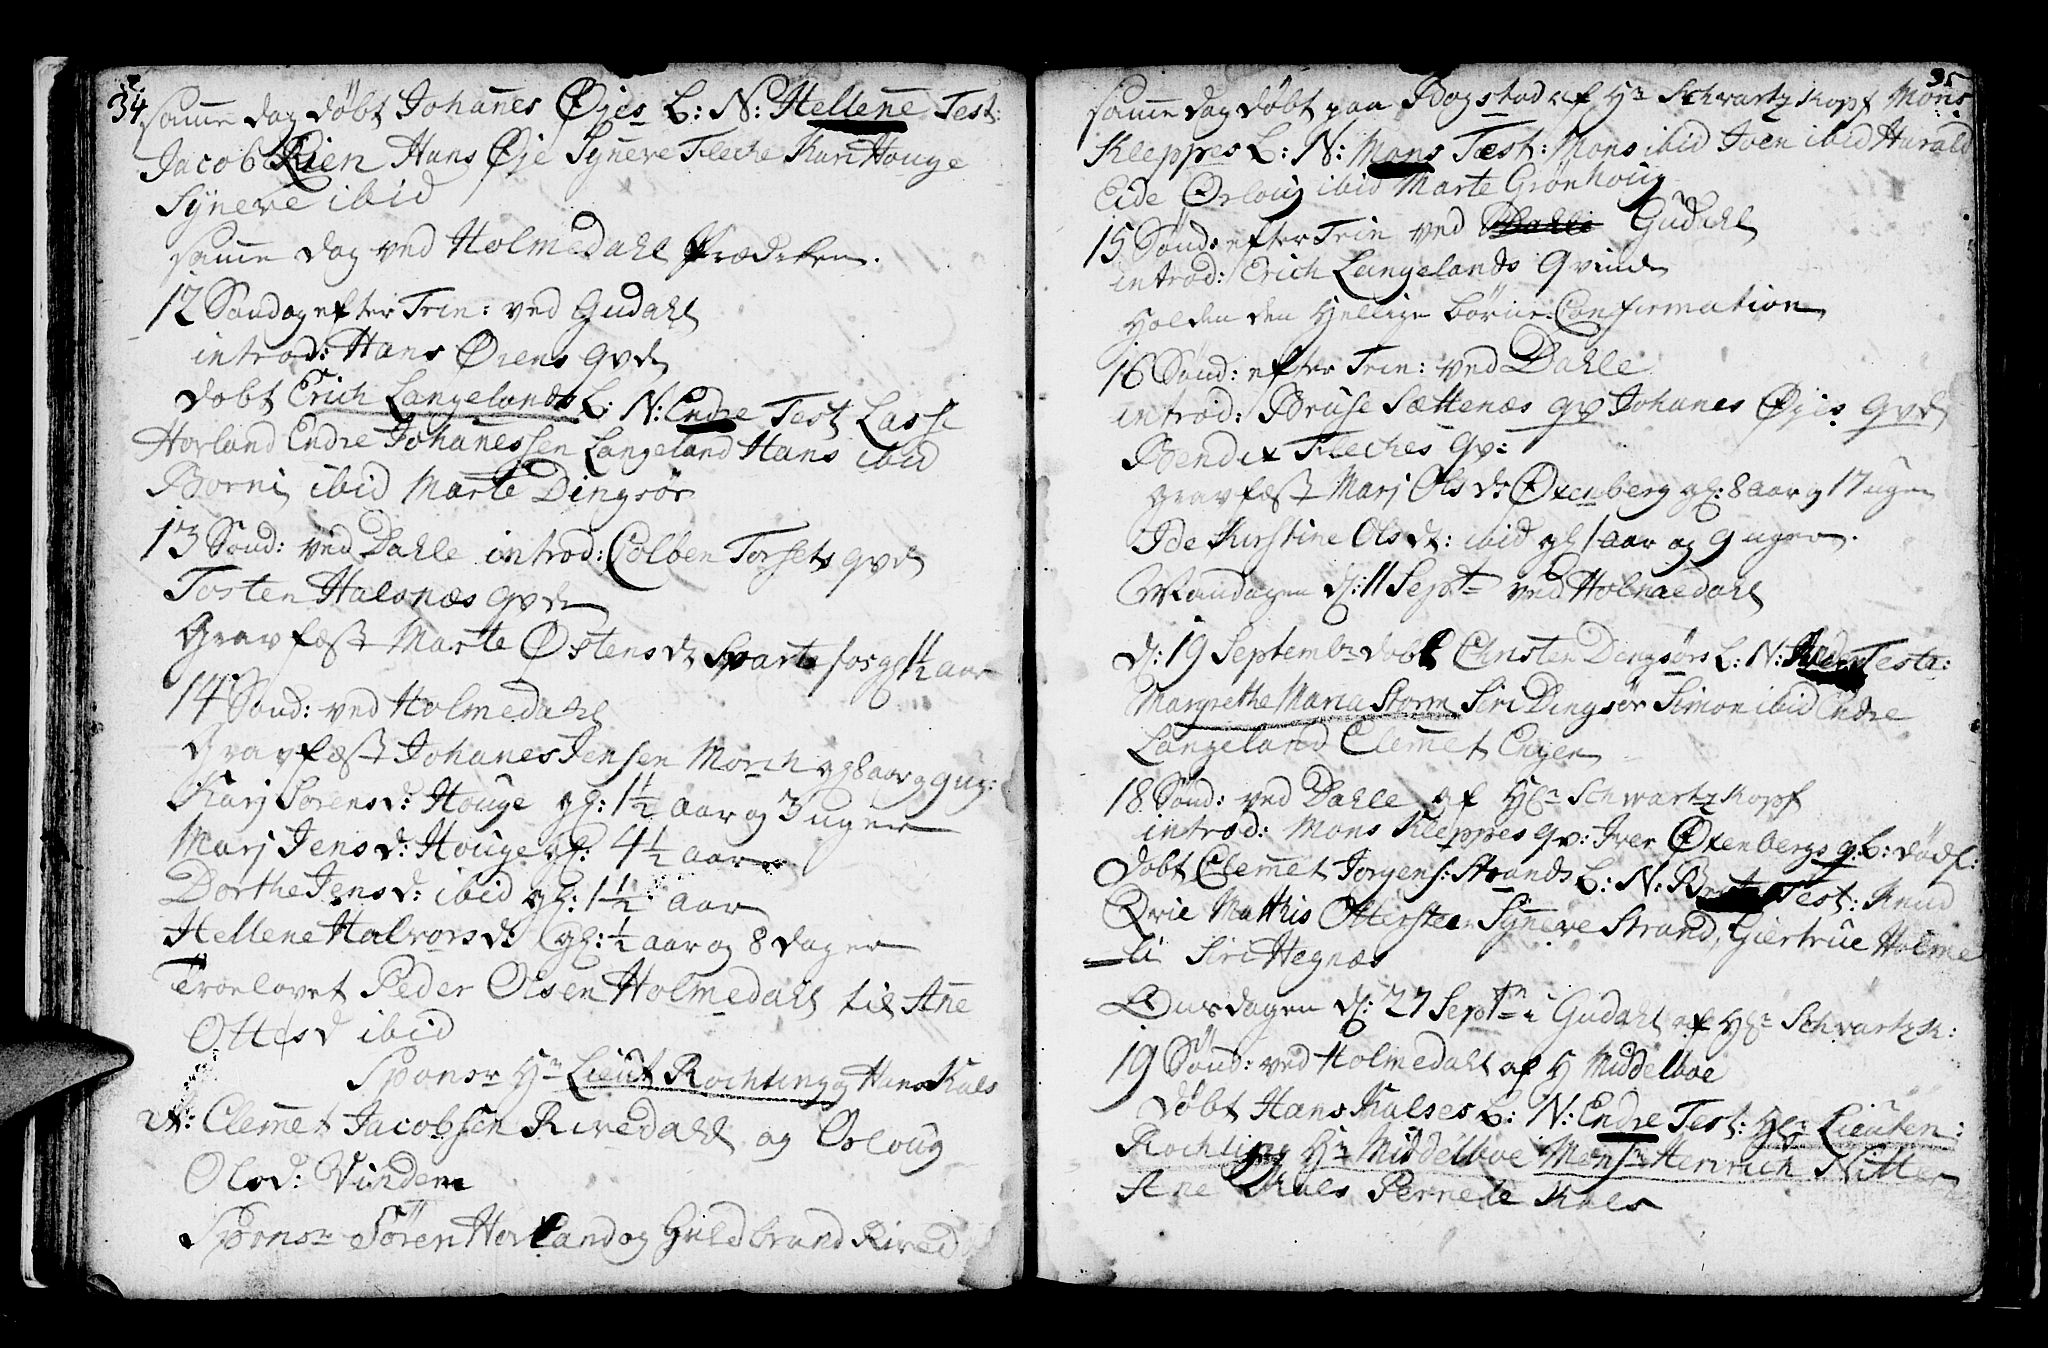 34
samme dag døbt Johannes Øyes B: N: Hellene Test:
Jacob Rien Hans Øje Synneve Fleche Kari Houge
Synneve ibid
samme dag ved Holmedahl Prædiken.
12 Sondag efter Trin: ved Gudahl
introd: Hans Ørens qvd
døbt Erich Langelands B: N: Endre Test Lasse
Horland Endre Johannessen Langeland Hans ibid
Borni ibid Marte Dingsør
13 Sond: ved Dahle introd: Colben Torsets qvd
Tosten Halsnæs qvd
Gravfæst Marte Østensd Svartefos gl 1½ aar
14 Sond: ved Holmedahl
Gravfæst Johanes Jensen Morch gl 8 aar og 9 ug:
Karj Sørensd: Houge gl: 1½ aar og 3 uger
Marj Jensd: Houge gl: 4½ aar
Dorthe Jensd: ibid gl: 1½ aar
Hellene Halvorsd: gl: ½ aar og 8 dager
Troelovet Peder Olsen Holmedahl til Ane
Ottesd ibid
Sponsr Hr Lieut Rochling og Hans Kals
it: Clemmet Jacobsen Rivedahl og Orloug
Olsd: Vinden
Sponsr Søren Horland og Guldbrand Rived
35
samme dag døbt paa Bogstad af Hr Schwartzkopf Mons
Kleppes B: N: Mons Test: Mons ibid Joen ibid Harald
Eide Orloug ibid Marte Grønhoug
15 Sønd: efter Trin ved Gudahl
introd: Erich Langelands Qvinde
Holden den Hellige børne Confirmation
16 Sønd: efter Trin: ved Dahle
introd: Bruse Sættenæs qv Johanes Øyes qvd
Bendix Fleches qv:
gravfæst Marj Olsd: Øxenberg gl: 8 aar og 17 uger
Ide Kirstine Olsd: ibid gl 1 aar og 9 uger.
Mandagen d: 11 Septr ved Holmedahl
d: 19 Septembr døbt Christen Dingsørs B: N: Test:
Margrethe Maria Storm Siri Dingsør Simon ibid Endre
Langeland Clemmet Engen
18 Sønd: ved Dahle af Hr Schwartzkopf
introd: Mons Kleppes qv: Iver Øxenbergs q: B: dødf:
døbt Clemmet Jorgens: Strands B: N: Test: Knud
Qvie Matthis Otterstei Synneve Strand, Giertrue Holme
li Siri Hegnæs
Onsdagen d: 27 Septr i Gudahl af Hr Schwartzk:
19 Sønd: ved Holmedahl af H Middelboe
døbt Hans Kalses B: N: Endre Test: Hr Lieuten:
Rochling Hr Middelboe Monsr Henrich Nitter
Ane Kals Pernele Kals